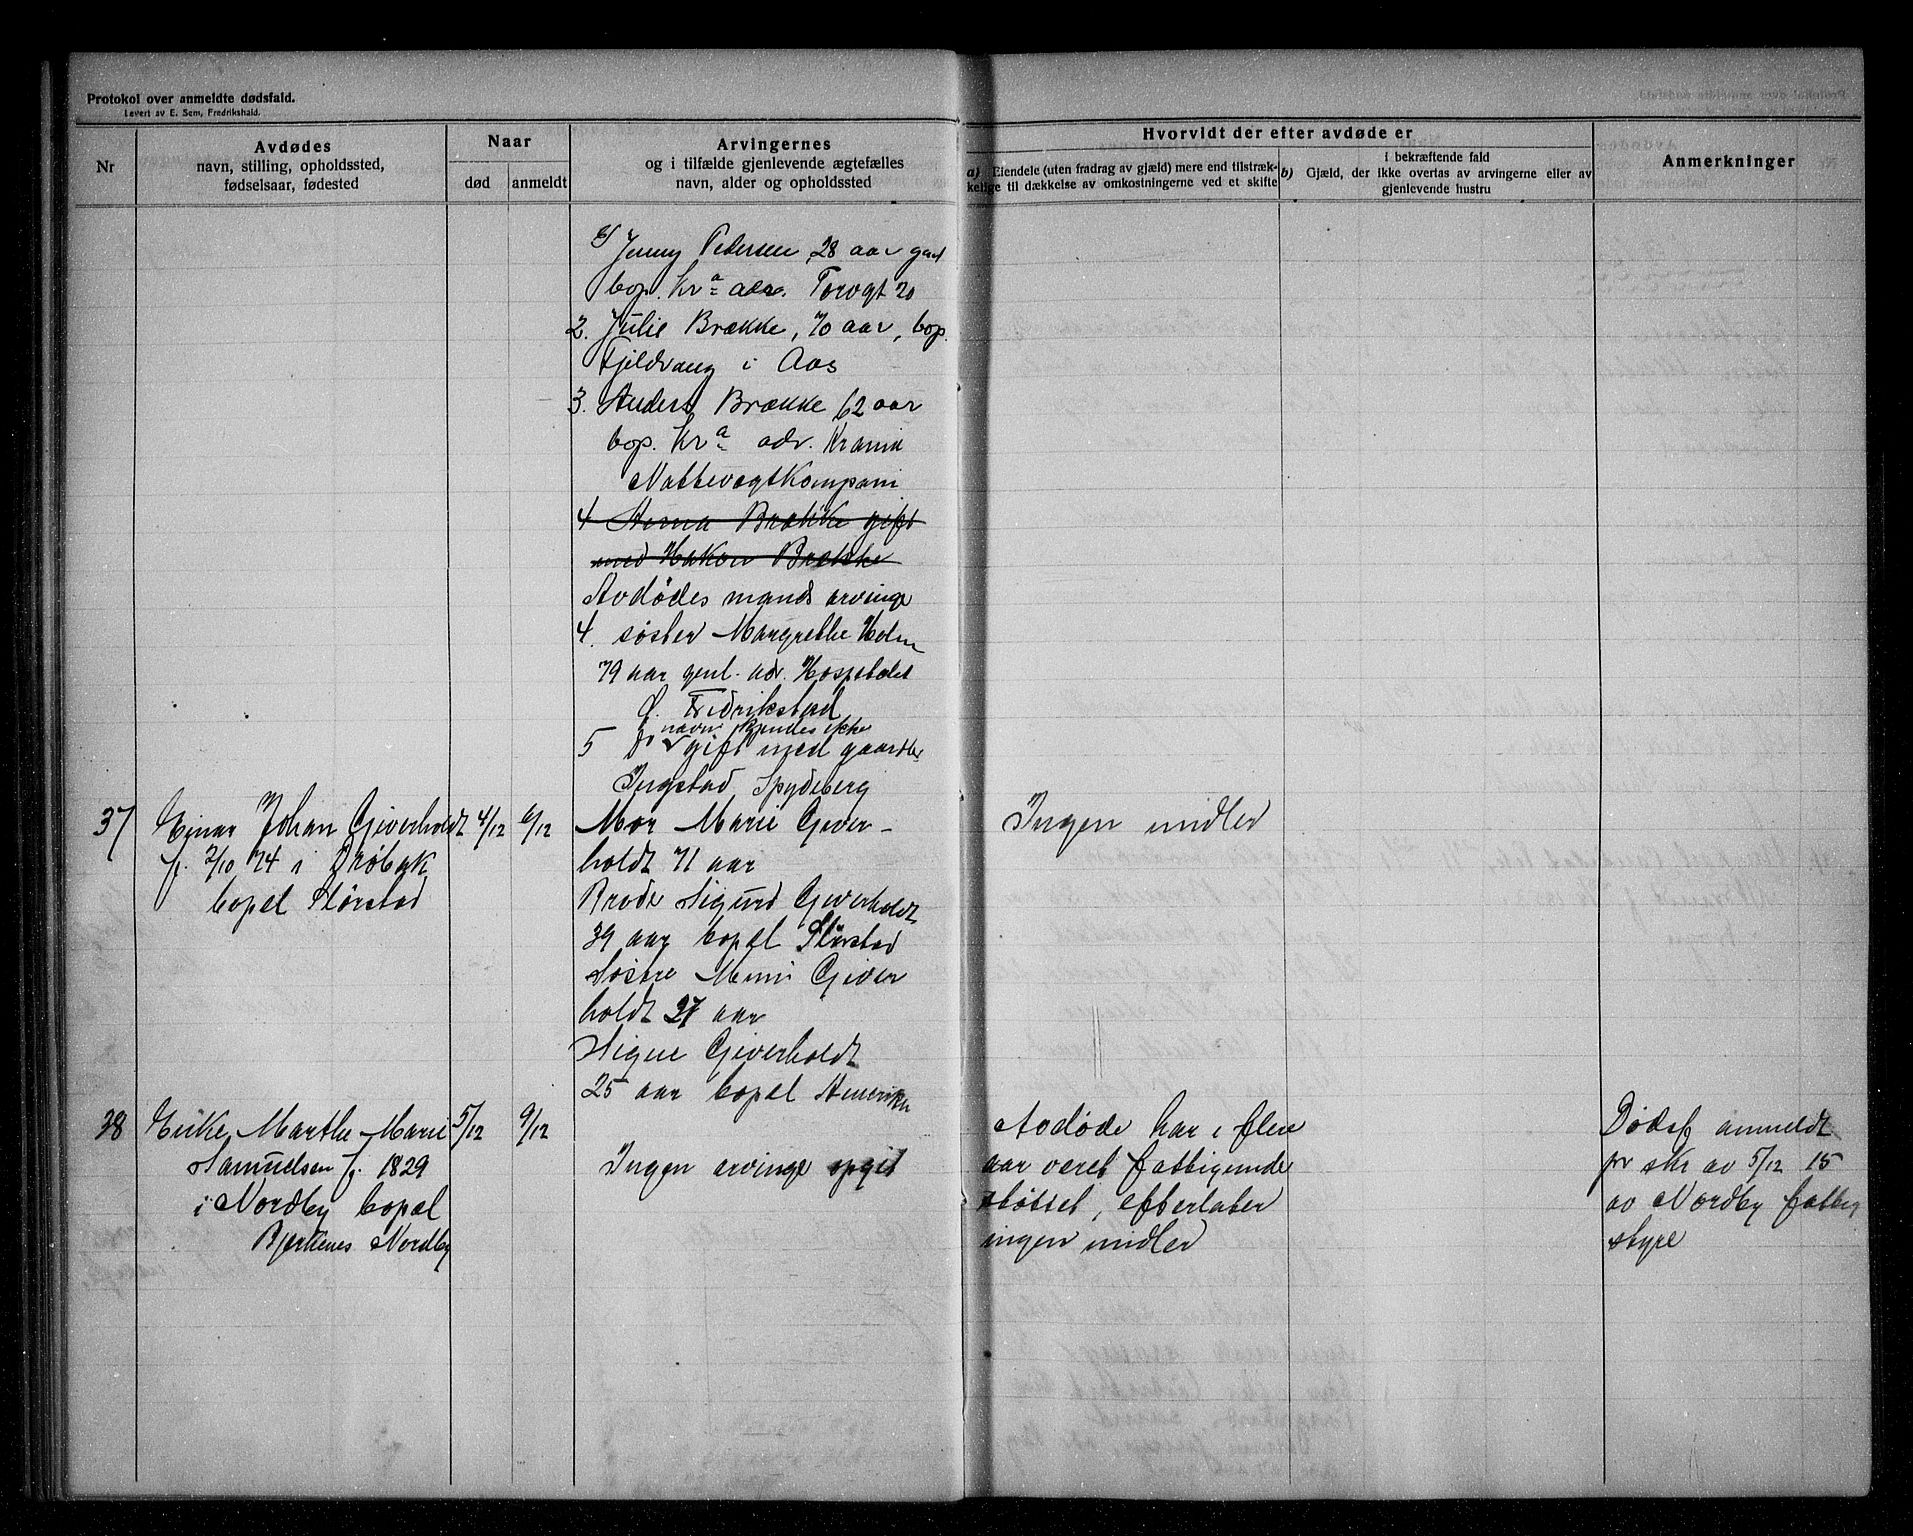 Protokol over anmeldte dødsfald.
Levert av E. Sem, Fredrikshald.
Nr
Avdødes
navn, stilling, opholdssted,
fødselsaar, fødested
Naar
død
anmeldt
Arvingernes
og i tilfælde gjenlevende ægtefælles
navn, alder og opholdssted
Hvorvidt der efter avdøde er
a) Eiendele (uten fradrag av gjæld) mere end tilstræk-
kelige til dækkelse av omkostningerne ved et skifte
I bekræftende fald
b) Gjæld, der ikke overtas av arvingerne eller av
gjenlevende hustru
Anmerkninger
Jenny Pedersen, 28 aar
bop. Kra adr. Torvgt 20
2. Julie Brække, 70 aar, bop.
Fjeldvang i Aas
3. Anders Brække 62 aar
bop. Kra adr. Krania
Nattevagtkompani
4 Brække gift
med Hakon Brække
Avdødes mands arvinge
4. søster Margrethe Holm
79 aar genl. adr. Hospitalet
Fredrikstad
navn kjendes ikke
5 gift med gaardbr
Ingstad, Spydeberg
37
Einar Johan Giverholdt
4/12
6/12
f. 2/10 74 i Drøbak
bopæl Störstad
Mor Marie Giver-
holdt 71 aar
Brode Sigurd Giverholdt
39 aar bopæl Störstad
Søstre Mimi Giver
holdt 27 aar
Signe Giverholdt
25 aar bopæl Amerika
Ingen midler
38
Enke Marthe Marie
5/12
9/12
Samuelsen f. 1829
i Nordby bopæl
Bjerkenes Nordby
Ingen arvinge opgit
Avdøde har i flere
aar været fattigunde
støttet, efterlater
ingen midler
Dødsf anmeldt
pr skr av 5/12 15
av Nordby fattig
styre